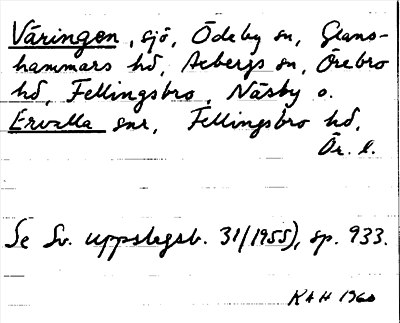 Väringen, sjö, Ödeby sn, Glans-
hammars hd, Axbergs sn, Örebro
hd, Fellingsbro, Näsby o.
Ervalla snr, Fellingsbro hd,
Ör. l.
Se Sv. uppslagsb. 31(1955), sp. 933.
KAH 1960